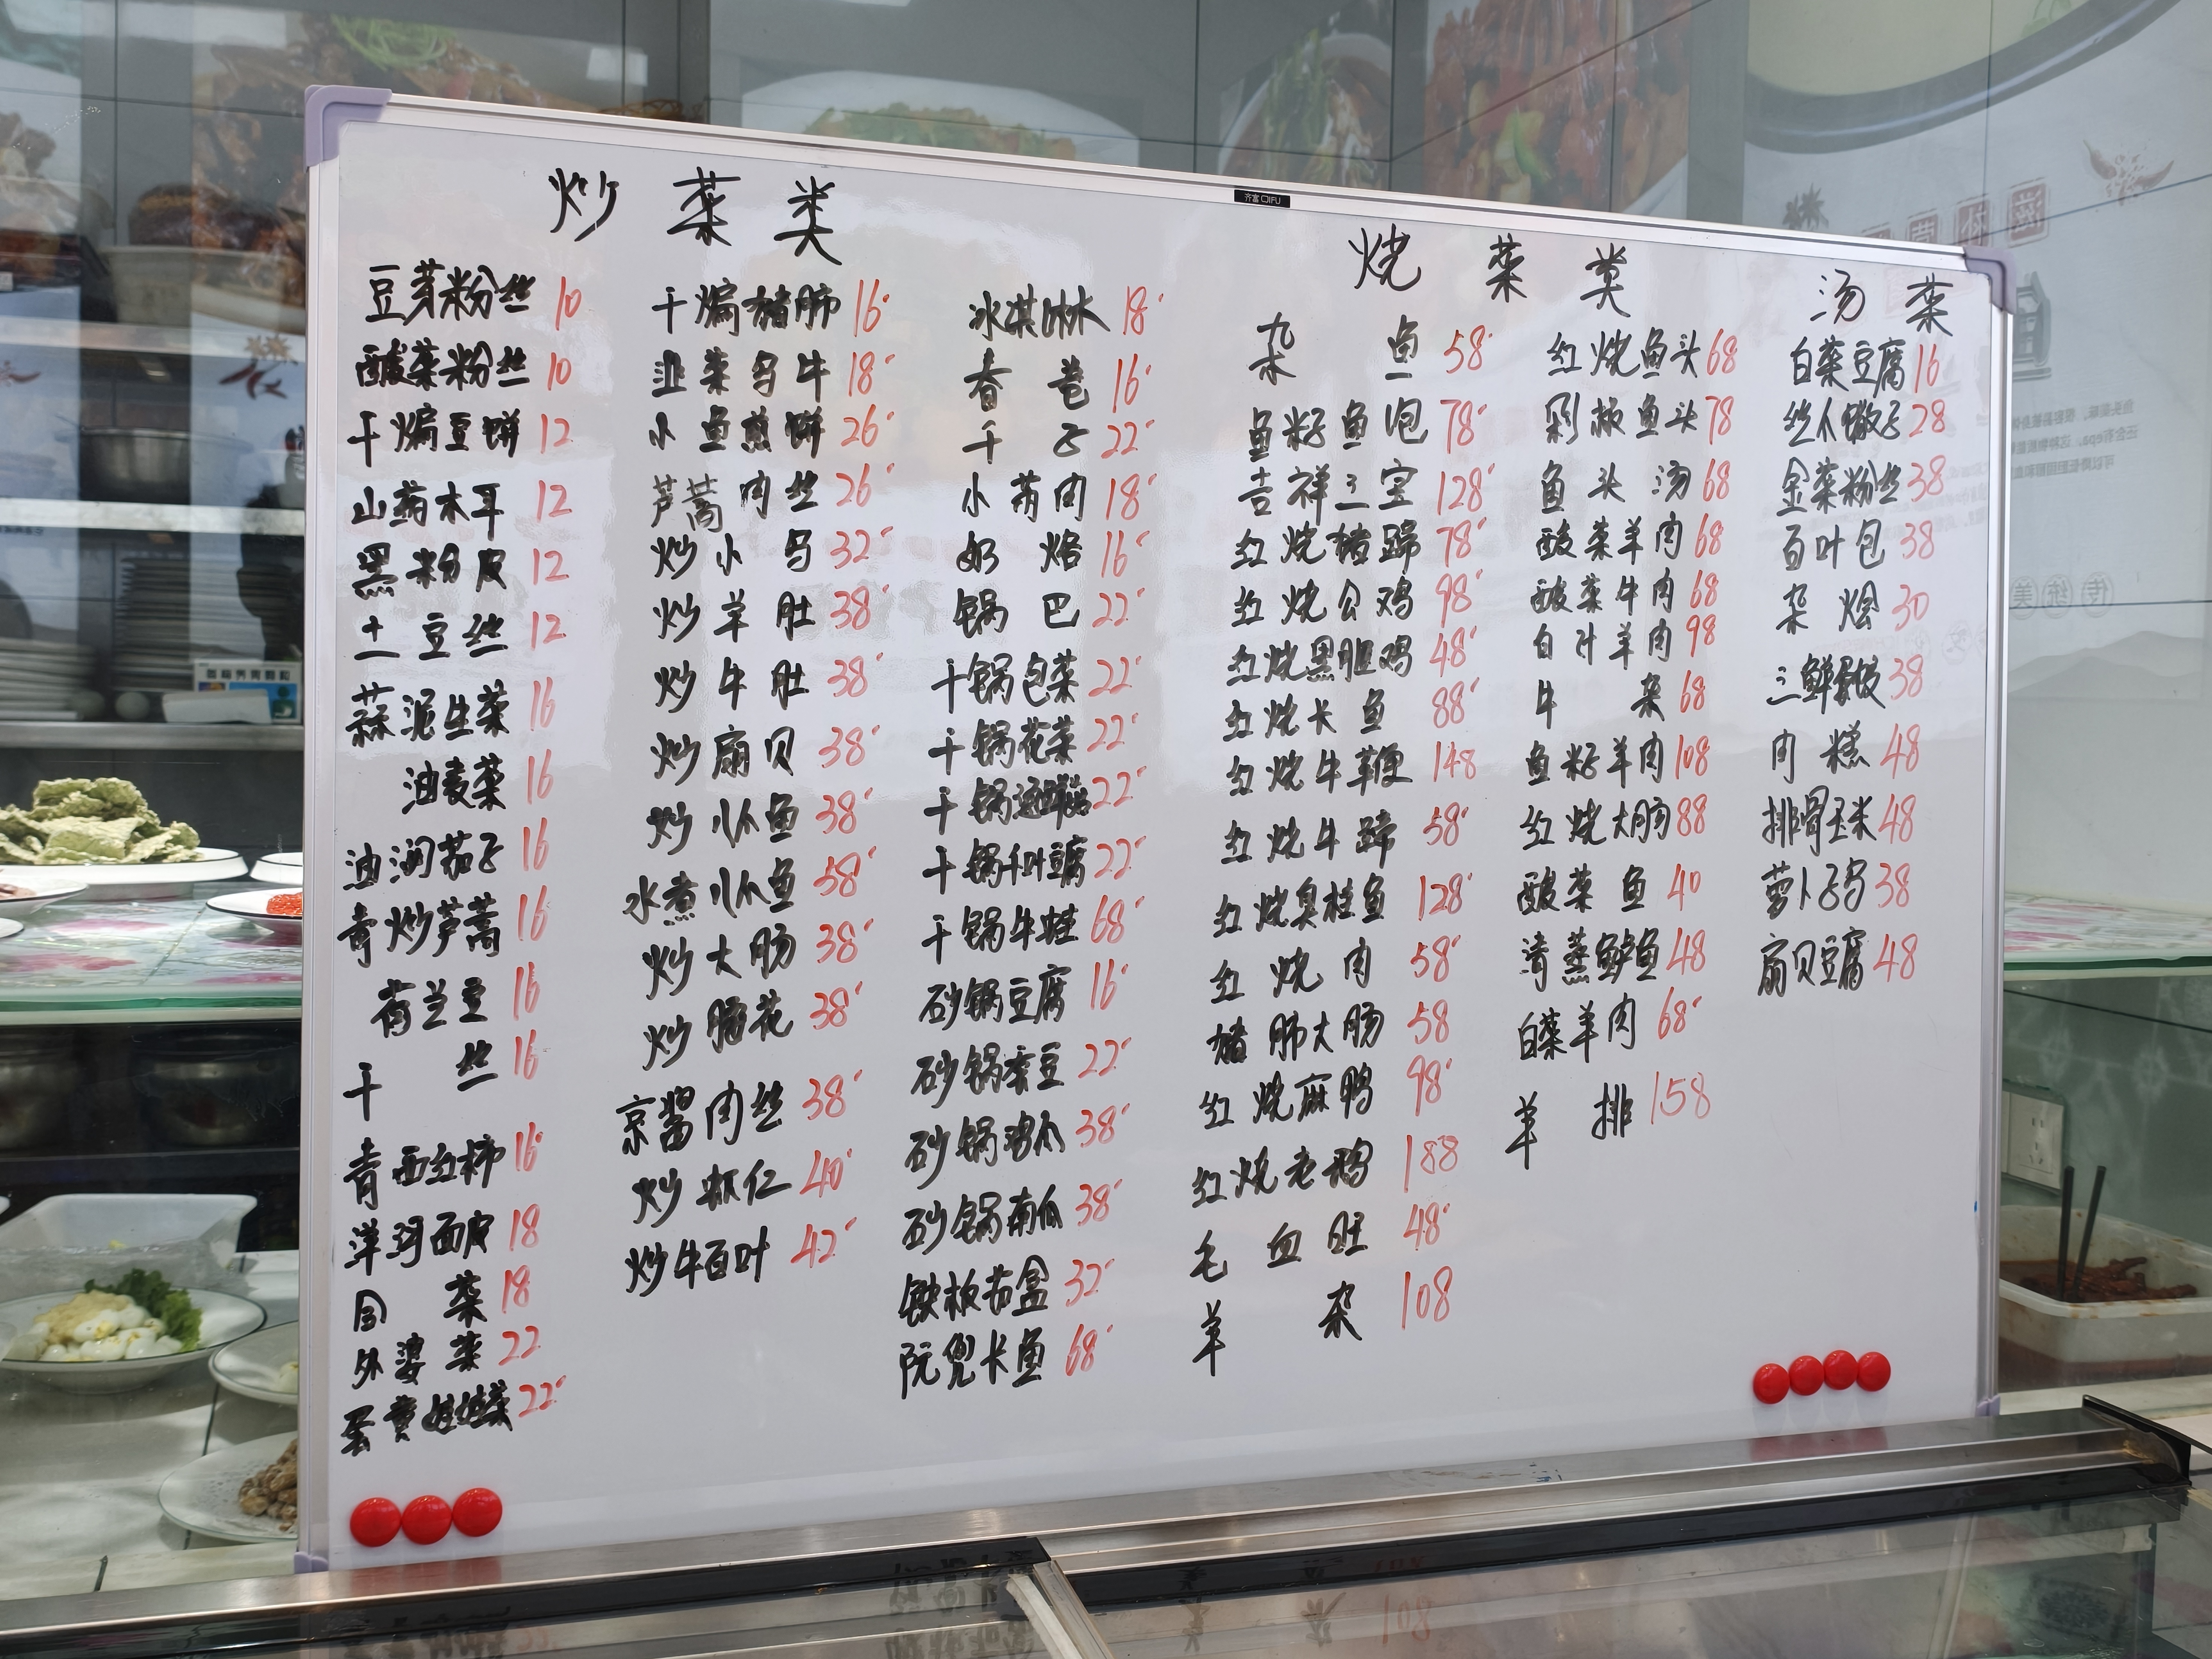 齐富 QIFU
炒菜类
豆芽粉丝 10
酸菜粉丝 10
干煸豆饼 12
山药木耳 12
黑粉皮 12
土豆丝 12
蒜泥生菜 16
油麦菜 16
油润茄子 16
青炒芦蒿 16
荷兰豆 16
干丝 16
青西红柿 16
洋河面皮 18
菜 18
外婆菜 22
蛋黄娃娃菜 22
干煸猪肺 16
韭菜乌牛 18
小鱼煎饼 26
芦蒿肉丝 26
炒小乌 32
炒羊肚 38
炒牛肚 38
炒扇贝 38
炒爪鱼 38
水煮爪鱼 58
炒大肠 38
炒腰花 38
京酱肉丝 38
炒虾仁 40
炒牛百叶 42
冰淇淋 18
春卷 16
千子 22
小芮肉 18
奶烙 16
锅巴 22
干锅包菜 22
干锅花菜 22
干锅 22
干锅千叶豆腐 22
干锅牛蛙 68
砂锅豆腐 16
砂锅蚕豆 22
砂锅鸡爪 38
砂锅南瓜 38
铁板茄盒 32
阮兜长鱼 68
烧菜类
杂鱼 58
鱼籽鱼泡 78
吉祥三宝 128
红烧猪蹄 78
红烧公鸡 98
红烧黑胆鸡 48
红烧长鱼 88
红烧牛鞭 148
红烧牛蹄 58
红烧臭桂鱼 128
红烧肉 58
猪肺大肠 58
红烧麻鸭 98
红烧老鹅 188
毛血旺 48
羊杂 108
红烧鱼头 68
剁椒鱼头 78
鱼头汤 68
酸菜羊肉 68
酸菜牛肉 68
白汁羊肉 98
牛杂 68
鱼籽羊肉 108
红烧大肠 88
酸菜鱼 40
清蒸鲈鱼 48
白菜羊肉 68
羊排 158
汤菜
白菜豆腐 16
丝瓜馓子 28
金菜粉丝 38
百叶包 38
杂烩 30
三鲜 38
肉糕 48
排骨玉米 48
萝卜子乌 38
扇贝豆腐 48